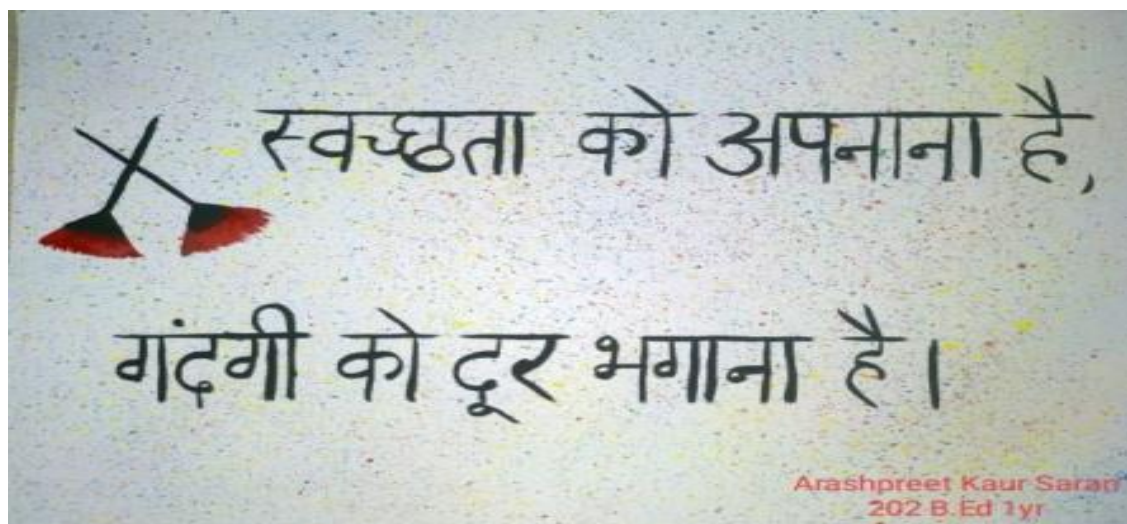 स्वच्छता को अपनाना है,
गंदगी को दूर भगाना है।
Arashpreet Kaur Saran
202 B.Ed 1yr